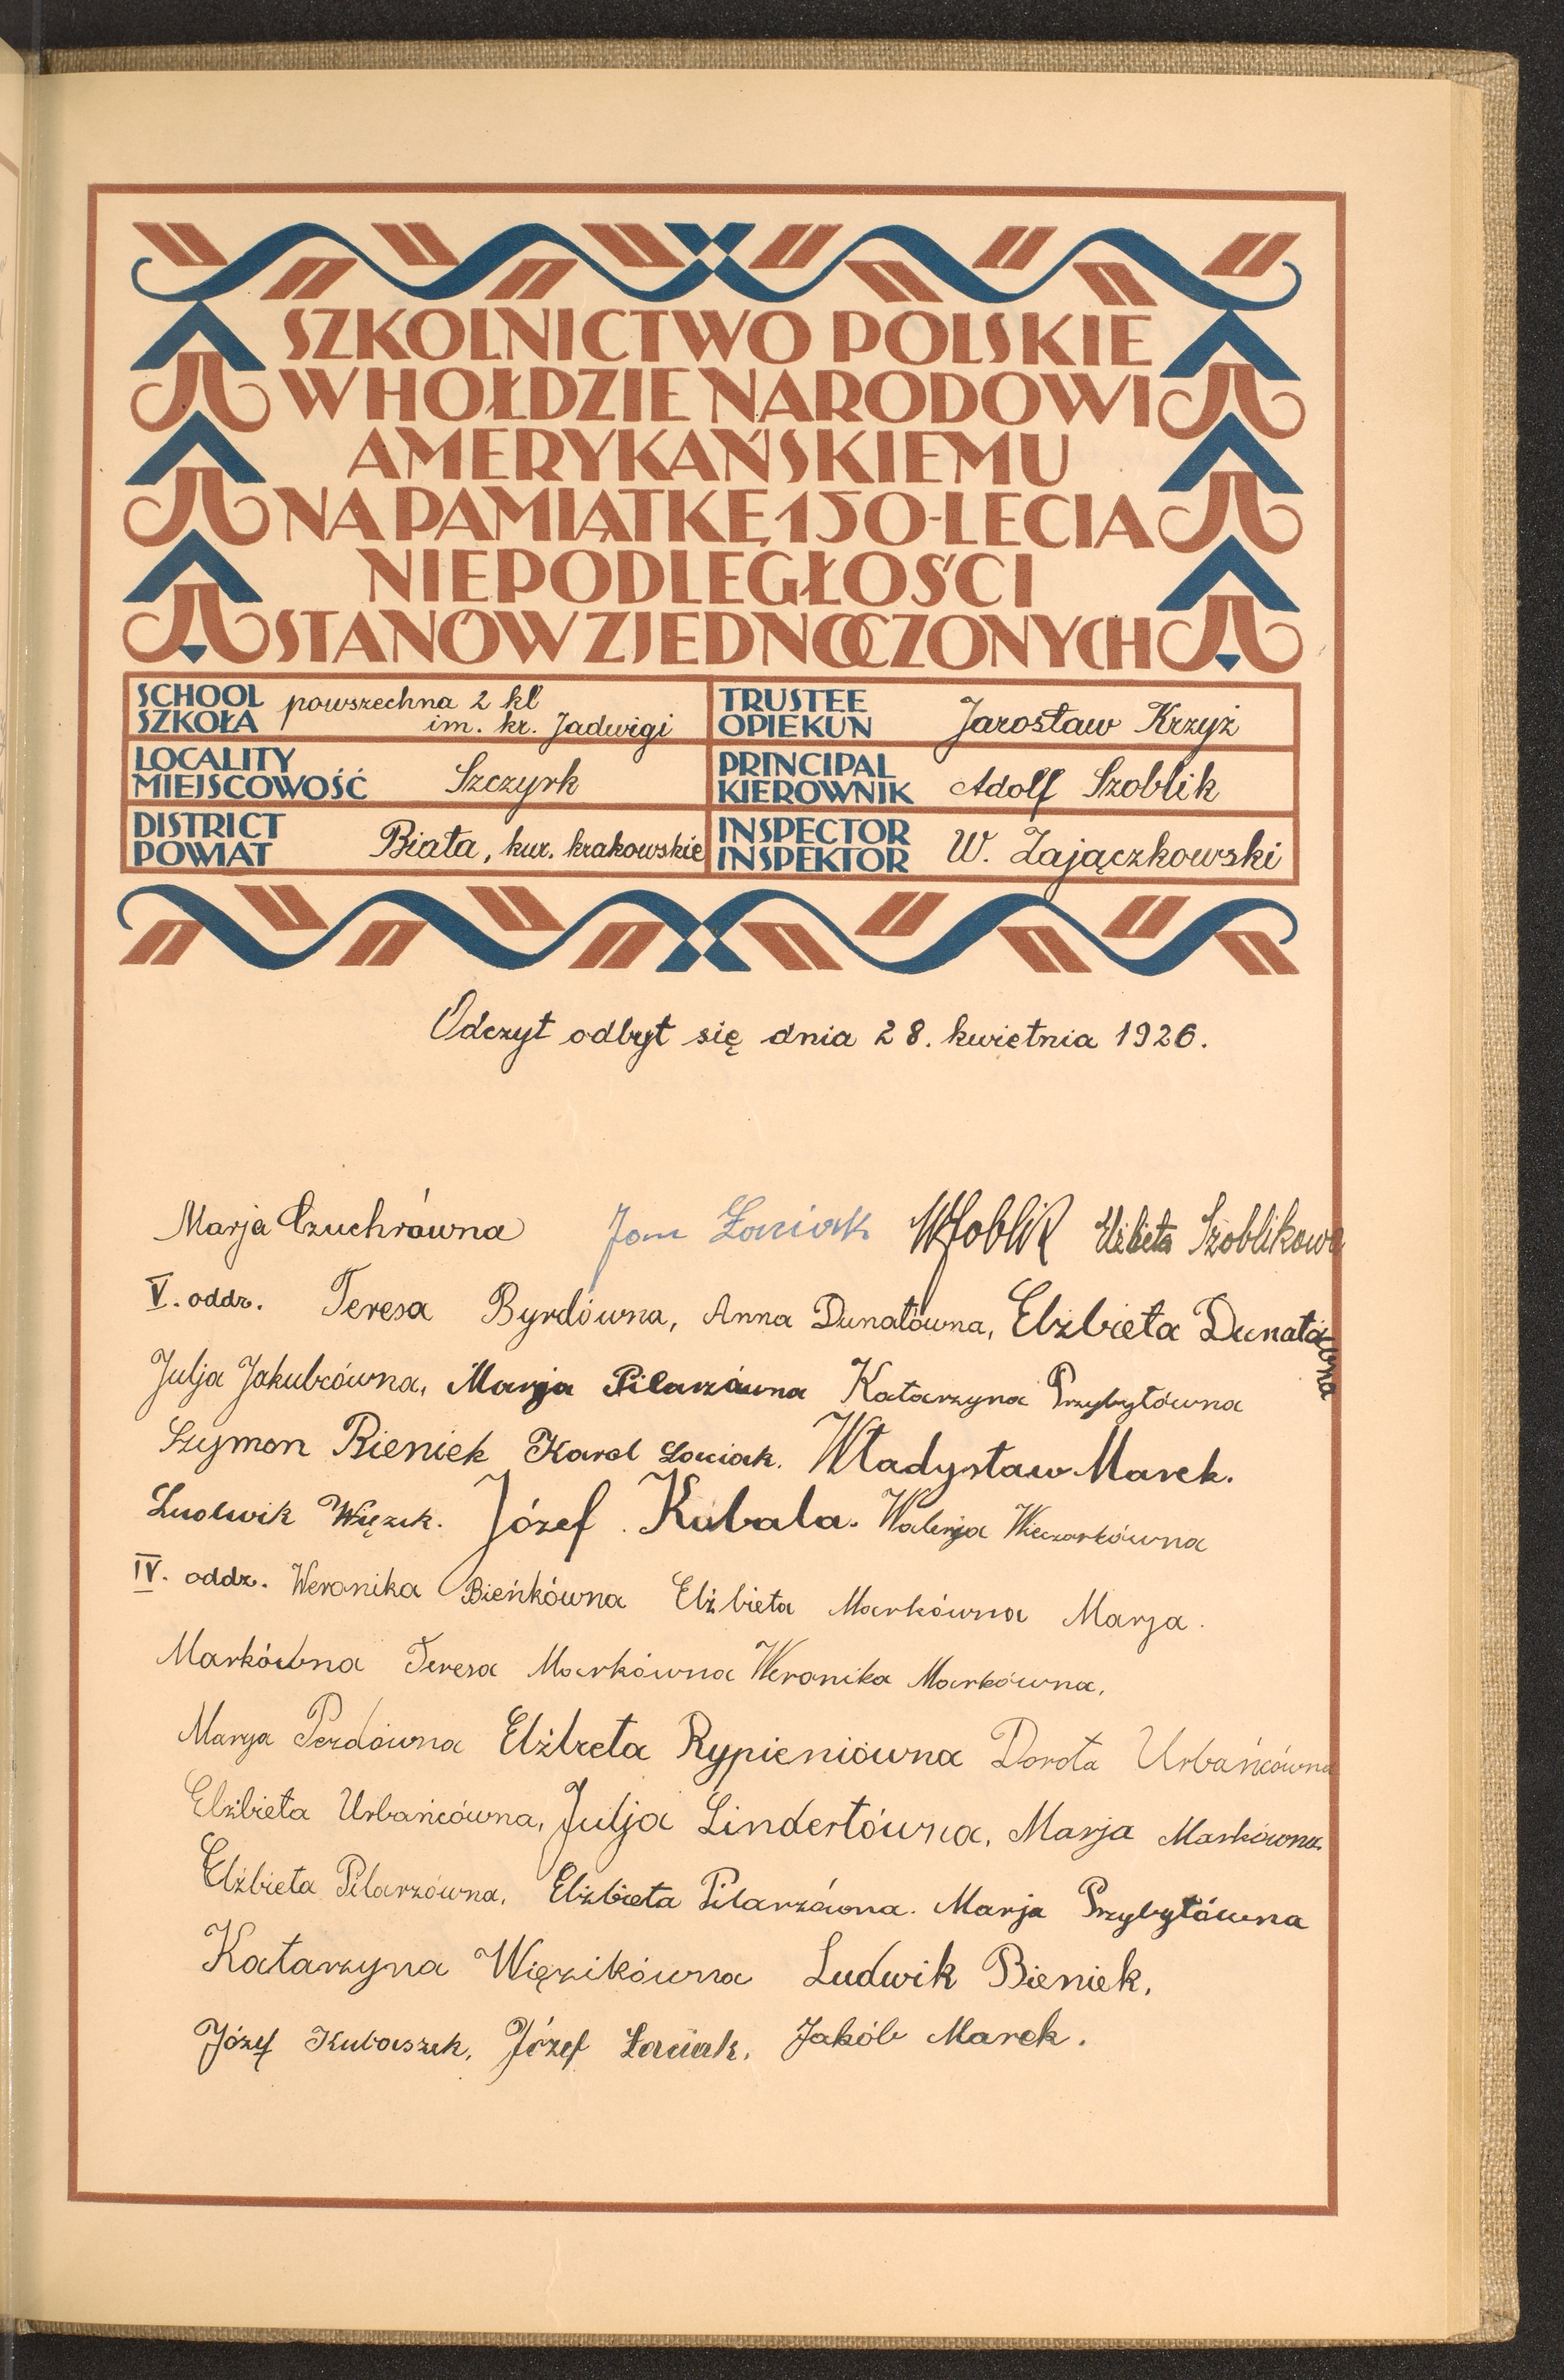 SZKOLNICTWO POLSKIE
W HOŁDZIE NARODOWI
AMERYKAŃSKIEMU
NA PAMIĄTKĘ 150-LECIA
NIEPODLEGŁOŚCI
STANÓW ZJEDNOCZONYCH
SCHOOL
SZKOŁA
powszechna 2 kl
im. kr. Jadwigi
TRUSTEE
OPIEKUN
Jarosław Krzyż
LOCALITY
MIEJSCOWOŚĆ
Szczyrk
PRINCIPAL
KIEROWNIK
Adolf Szoblik
DISTRICT
POWIAT
Biała, kur. krakowskie
INSPECTOR
INSPEKTOR
W. Zajączkowski
Odczyt odbył się dnia 28. kwietnia 1926.
Marja Czuchrówna Jan Łaciak Elżbieta Szoblikowa
V. oddz. Teresa Byrdówna, Anna Dunatówna, Elżbieta Dunatówna
Julja Jakubcówna, Marja Pilarzówna Katarzyna Przybyłówna
Szymon Bieniek Karol Łaciak. Władysław Marek.
Ludwik Więzik. Józef Kubala. Walerja Wieczorkówna
IV. oddz. Weronika Bieńkówna Elżbieta Markówna Marja.
Markówna Teresa Markówna Weronika Markówna,
Marya Pezdówna Elżbieta Rypieniówna Dorota Urbańcówna
Elżbieta Urbańcówna, Julja Lindertówna, Marja Markówna.
Elżbieta Pilarzówna, Elżbieta Pilarzówna. Marja Przybyłówna
Katarzyna Więzikówna Ludwik Bieniek,
Józef Kubaszek, Józef Łaciak, Jakób Marek.